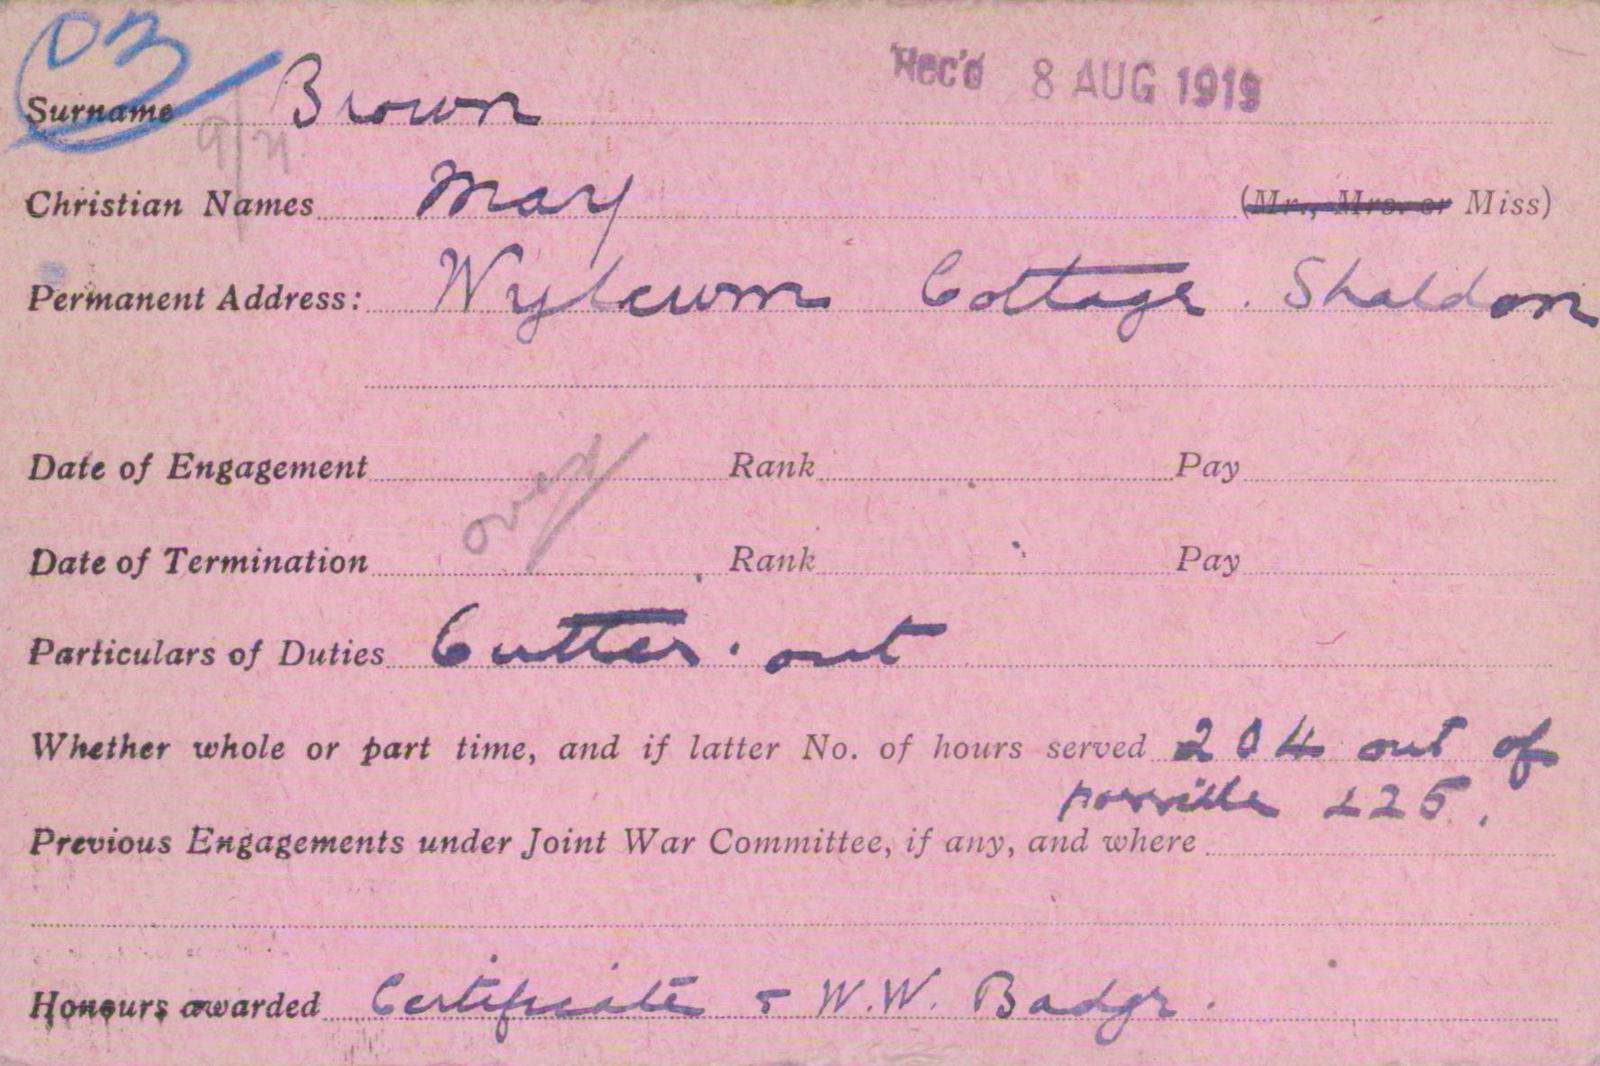 03
Surname Brown Rec'd 8 AUG 1919
Christian Names May (Mr., Mrs. or Miss)
Permanent Address: Cottage. Shaldon
Date of Engagement Rank Pay
over
Date of Termination Rank Pay
Particulars of Duties Cutter. out
Whether whole or part time, and if latter No. of hours served 204 out of
possible 225.
Previous Engagements under Joint War Committee, if any, and where
Honours awarded Certificate & W.W. Badge.